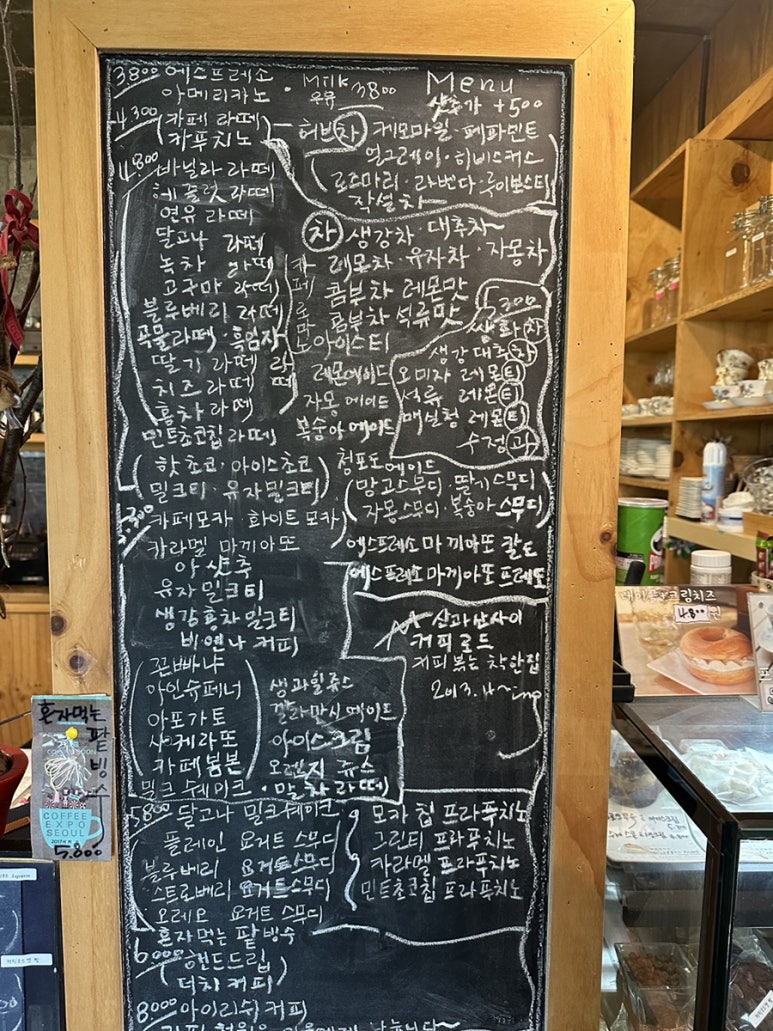 Menu
3800 에스프레소
아메리카노
Milk
우유 3800
샷추가 +500
4,300
카페 라떼
카푸치노
허브차 케모마일·페파민트
얼그레이·히비스커스
로즈마리·라벤다·루이보스티
작설차
4,800 바닐라 라떼
헤즐럿 라떼
연유 라떼
달고나 라떼
녹차 라떼
고구마 라떼
블루베리 라떼
곡물라떼·흑임자
딸기 라떼
치즈 라떼
홍차 라떼
민트초코칩 라떼
라떼
차 생강차·대추차~
레몬차·유자차·자몽차
콤부차 레몬맛
콤부차 석류맛
아이스티
레몬에이드
자몽 에이드
복숭아 에이드
청포도에이드
5,300
쌍화차
생강대추차
오미자 레몬티
석류 레몬티
매실청 레몬티
수정과
핫초코·아이스초코
밀크티·유자밀크티
망고스무디·딸기스무디
자몽스무디·복숭아스무디
5,300
카페모카·화이트모카
카라멜 마끼아또
유자밀크티
생강홍차밀크티
비엔나 커피
에스프레소마끼아또 칼도
에스프레소마끼아또프레도
산과산사이
커피로드
커피볶는 착한집
꼰빠냐
아인슈페너
아포가토
샤케라또
카페봄본
밀크쉐이크·말차라떼
생과일쥬스
깔라만시에이드
아이스크림
오렌지 쥬스
5800 달고나 밀크쉐이크
플레인 요거트 스무디
블루베리 요거트스무디
스트로베리 요거트스무디
오레오 요거트 스무디
혼자먹는 팥빙수
모카 칩 프라푸치노
그린티 프라푸치노
카라멜 프라푸치노
민트초코칩 프라푸치노
6000
핸드드립
더치커피
8000 아이리쉬커피
혼자먹는
팥빙수
COFFEE
EXPO
SEOUL
5,800
크림치즈
4,800원